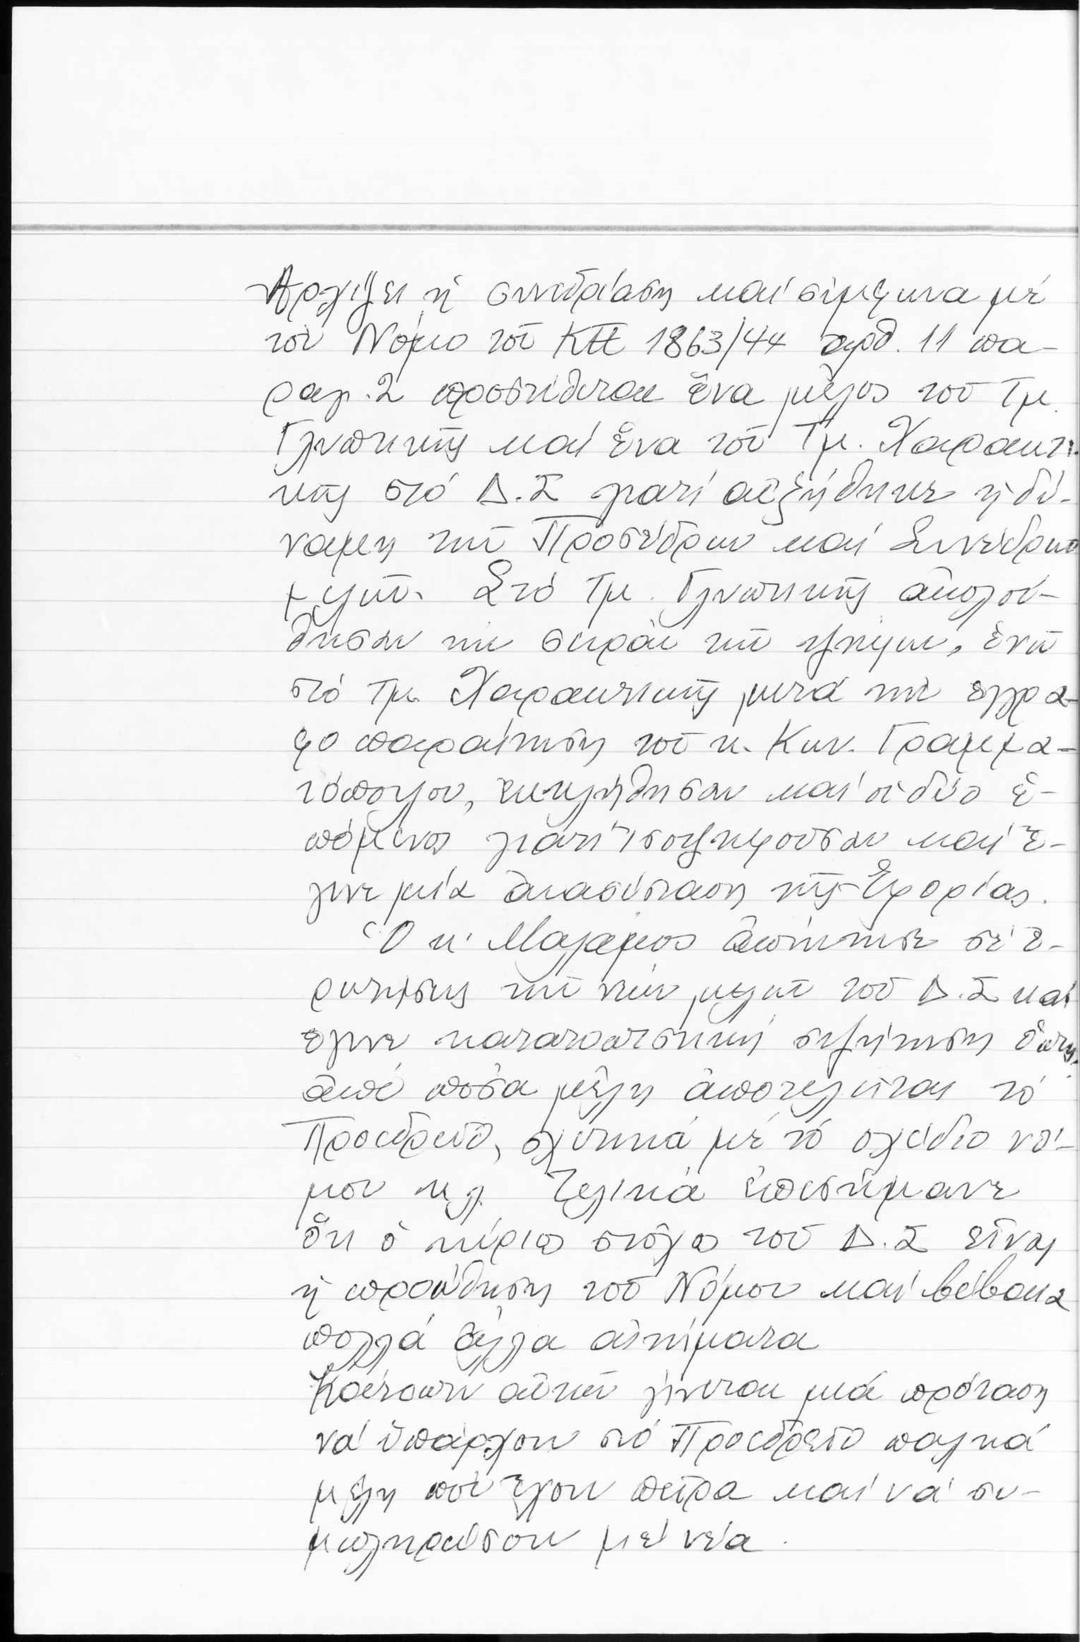 Αρχίζει ἡ συνεδρίαση καί σύμφωνα μέ
τόν Νόμο τοῦ ΚΗ 1863/44 ἀρθ. 11 πα-
ραγ. 2 προστίθεται ἕνα μέλος τοῦ Τμ.
Γλυπτικῆς καί ἕνα τοῦ Τμ. Χαρακτι-
κῆς στό Δ.Σ γιατί αὐξήθηκε ἡ δύ-
ναμη τῶν Προσέδρων καί Συνέδρων
μελῶν. Στό Τμ. Γλυπτικῆς ἀκολού-
θησαν τήν σειρά τῶν ψήφων, ἐνῶ
στό Τμ. Χαρακτικῆς μετά τήν ἔγγρα-
φο παραίτηση τοῦ κ. Κων. Γραμμα-
τόπουλου, ἐκλήθησαν καί οἱ δύο ἑ-
πόμενοι γιατί ἰσοψηφοῦσαν καί ἔ-
γινε μία ἀνασύσταση τῆς Ἐφορίας.
Ὁ κ. Μαλάμος ἀπήντησε σέ ἐ-
ρωτήσεις τῶν νέων μελῶν τοῦ Δ.Σ καί
ἔγινε κατατοπιστική συζήτηση ὅπως
ἀπό πόσα μέλη ἀποτελεῖται τό
Προεδρεῖο, σχετικά μέ τό σχέδιο νό-
μου κλ. Τελικά ἐπεσήμανε
ὅτι ὁ κύριος στόχος τοῦ Δ.Σ εἶναι
ἡ προώθηση τοῦ Νόμου καί βέβαια
πολλά ἄλλα αἰτήματα
Κατόπιν αὐτῶν γίνεται μιά πρόταση
νά ὑπάρχουν στό Προεδρεῖο παλικά
μέλη πού ἔχουν πεῖρα καί νά συ-
μπληρώσουν μέ νέα.